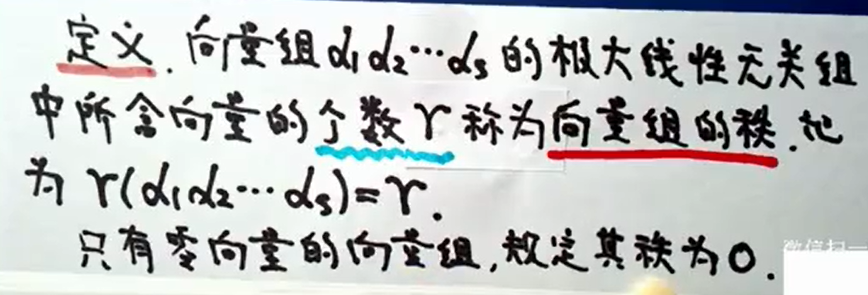 定义.向量组α₁α₂⋯αₛ的极大线性无关组
中所含向量的个数r称为向量组的秩.记
为r(α₁α₂⋯αₛ)=r.
只有零向量的向量组,规定其秩为0.
微信扫一